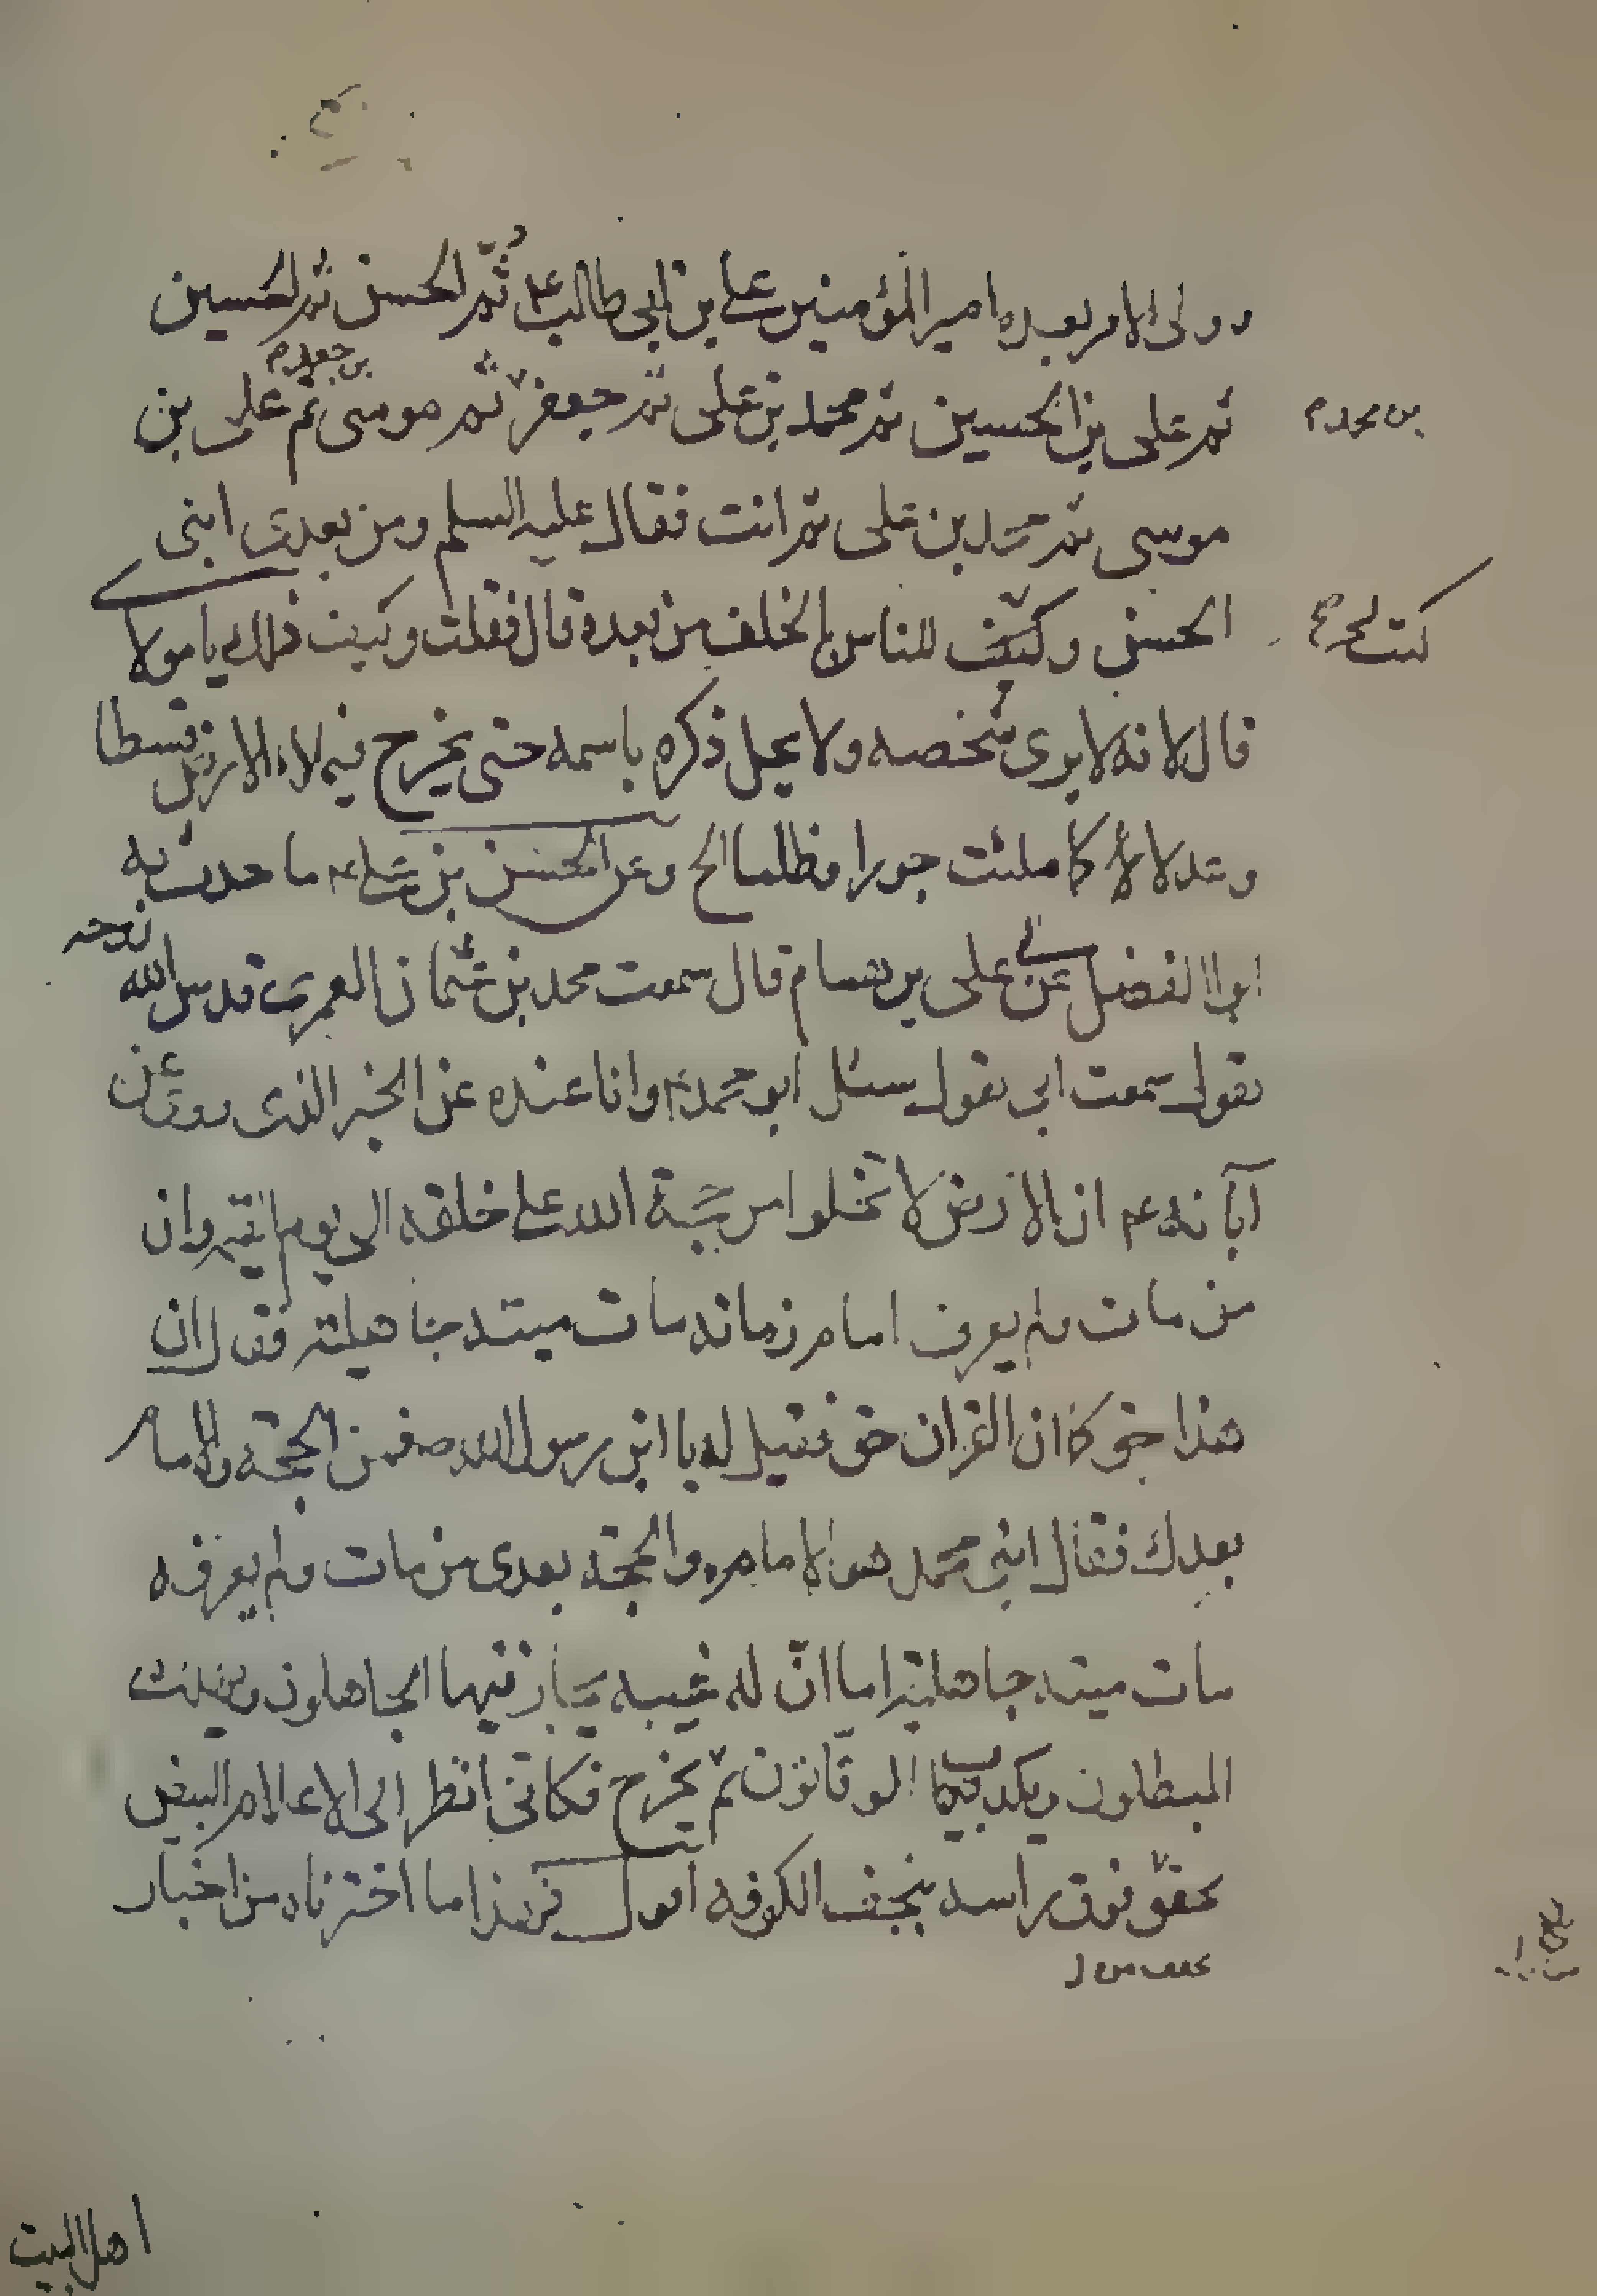 وولى الامر بعده امير المؤمنين على بن ابى طالب ع ثم الحسن ثم الحسين
ثم على بن الحسين ثم محمد بن على ثم جعفر ثم موسى ثم على بن
بن محمد م
بن جعفر م
موسى ثم محمد بن على ثم انت فقال عليه السلم ومن بعدى ابنى
الحسن وكيف للناس بالخلف من بعده قال فقلت وكيف ذلك يا مولاى
قال لانه لا يرى شخصه ولا يحل ذكره باسمه حتى يخرج فيملاء الارض قسطا
وعدلا كما ملئت جورا وظلما الخ وعن الحسن بن على ع ما حدث به
ابوا الفضل عن ابى على بن همام قال سمعت محمد بن عثمان العمرى قدس الله روحه
يقول سمعت ابى يقول سئل ابو محمد ع وانا عنده عن الخبر الذى روى عن
آبائه ع ان الارض لا تخلوا من حجة الله على خلقه الى يوم القيمة وان
من مات ولم يعرف امام زمانه مات ميتة جاهلية فقال ان
هذا حق كما ان القران حق فقيل له يا ابن رسول الله ص فمن الحجة والامام
بعدك فقال ابنى محمد هو الامام والحجة بعدى من مات ولم يعرفه
مات ميتة جاهلية اما ان له غيبه يحار فيها الجاهلون ويهلك
المبطلون ويكذب فيها الوقاتون ثم يخرج فكانى انظر الى الاعلام البيض
تخفق فوق راسه بنجف الكوفه اقول فهذا ما اخترناه من اخبار
اهل البيت